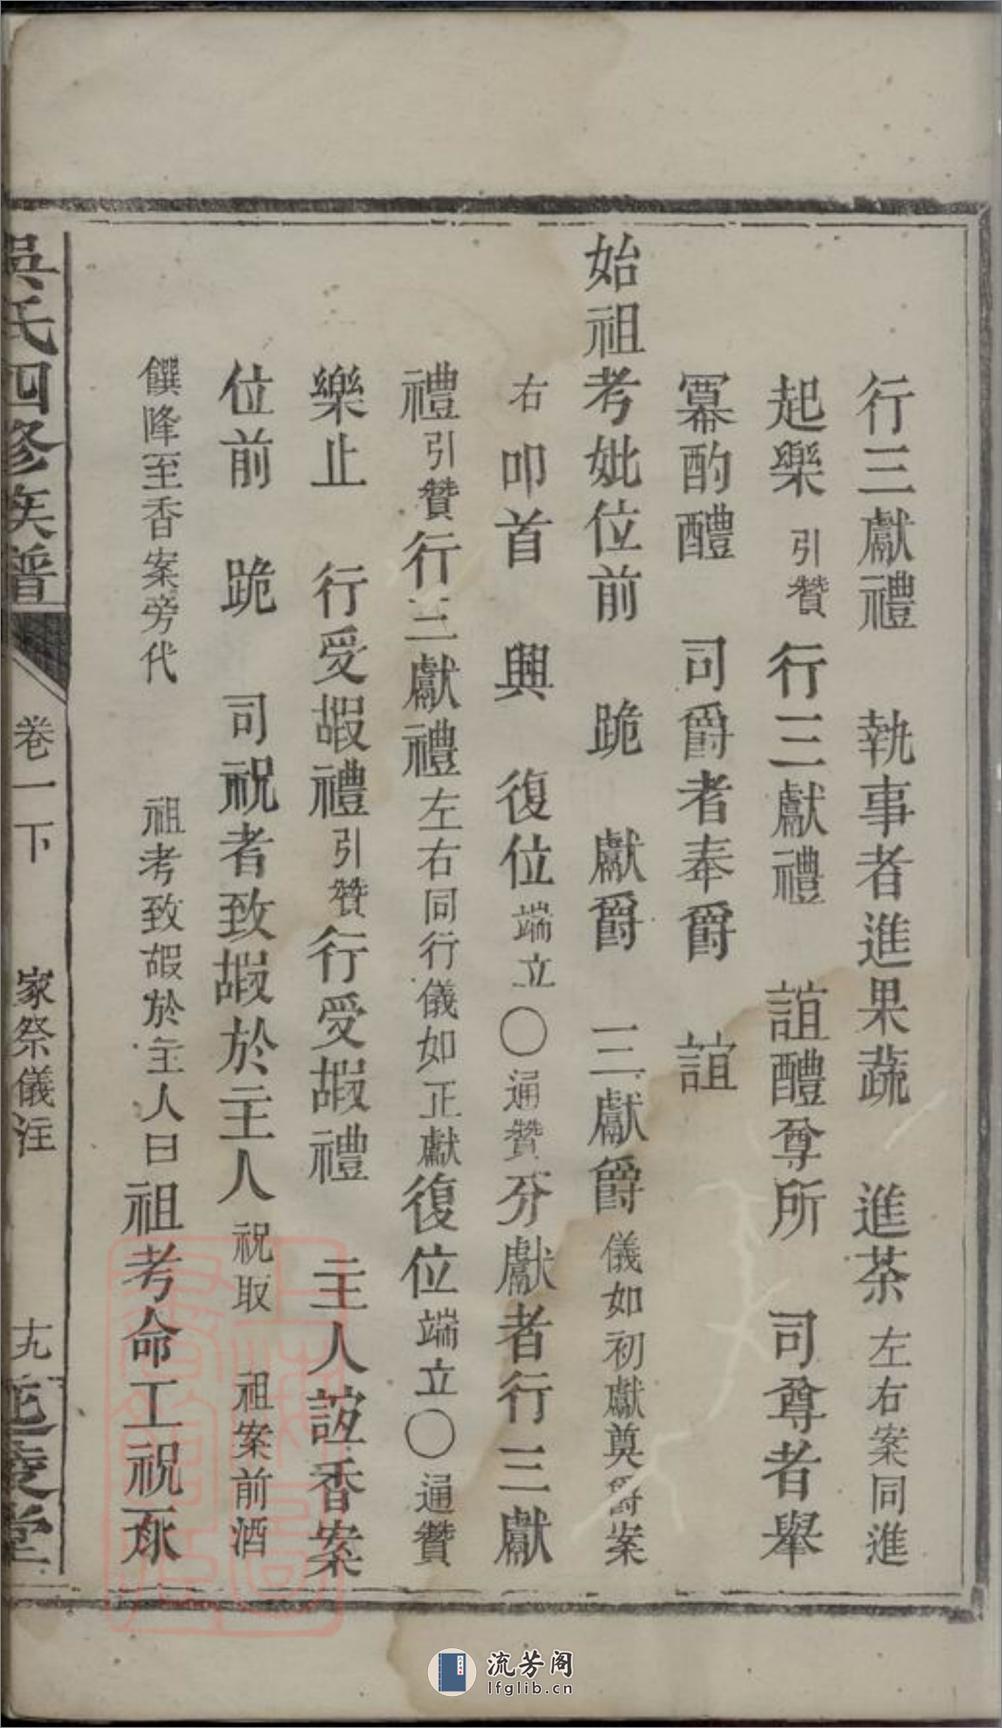 行三獻禮　執事者進果蔬　進茶左右案同進
起樂引贊行三獻禮　誼醴尊所　司尊者舉
冪酌醴　司爵者奉爵　誼
始祖考妣位前　跪　獻爵　三獻爵儀如初獻奠爵案
右叩首　興　復位端立〇通贊分獻者行三獻
禮引贊行三獻禮左右同行儀如正獻復位端立〇通贊
樂止　行受嘏禮引贊行受嘏禮　主人誼香案
位前　跪　司祝者致嘏於主人祝取　祖案前酒
饌降至香案旁代　祖考致嘏於主人曰祖考命工祝承
吳氏四修族譜　卷一下　家祭儀注　十九　延陵堂
流芳阁
lfglib.cn